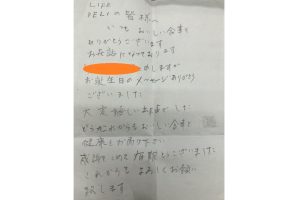 LIFE
DELIの皆様へ
いつもおいしい食事を
ありがとうございます
お世話になっております
申しますが
お誕生日のメッセージありがとう
ございました
大変嬉しい
どうぞこれからもおいしい食事と
健康を
感謝をこめて有難うございました
これからもよろしくお願い
致します